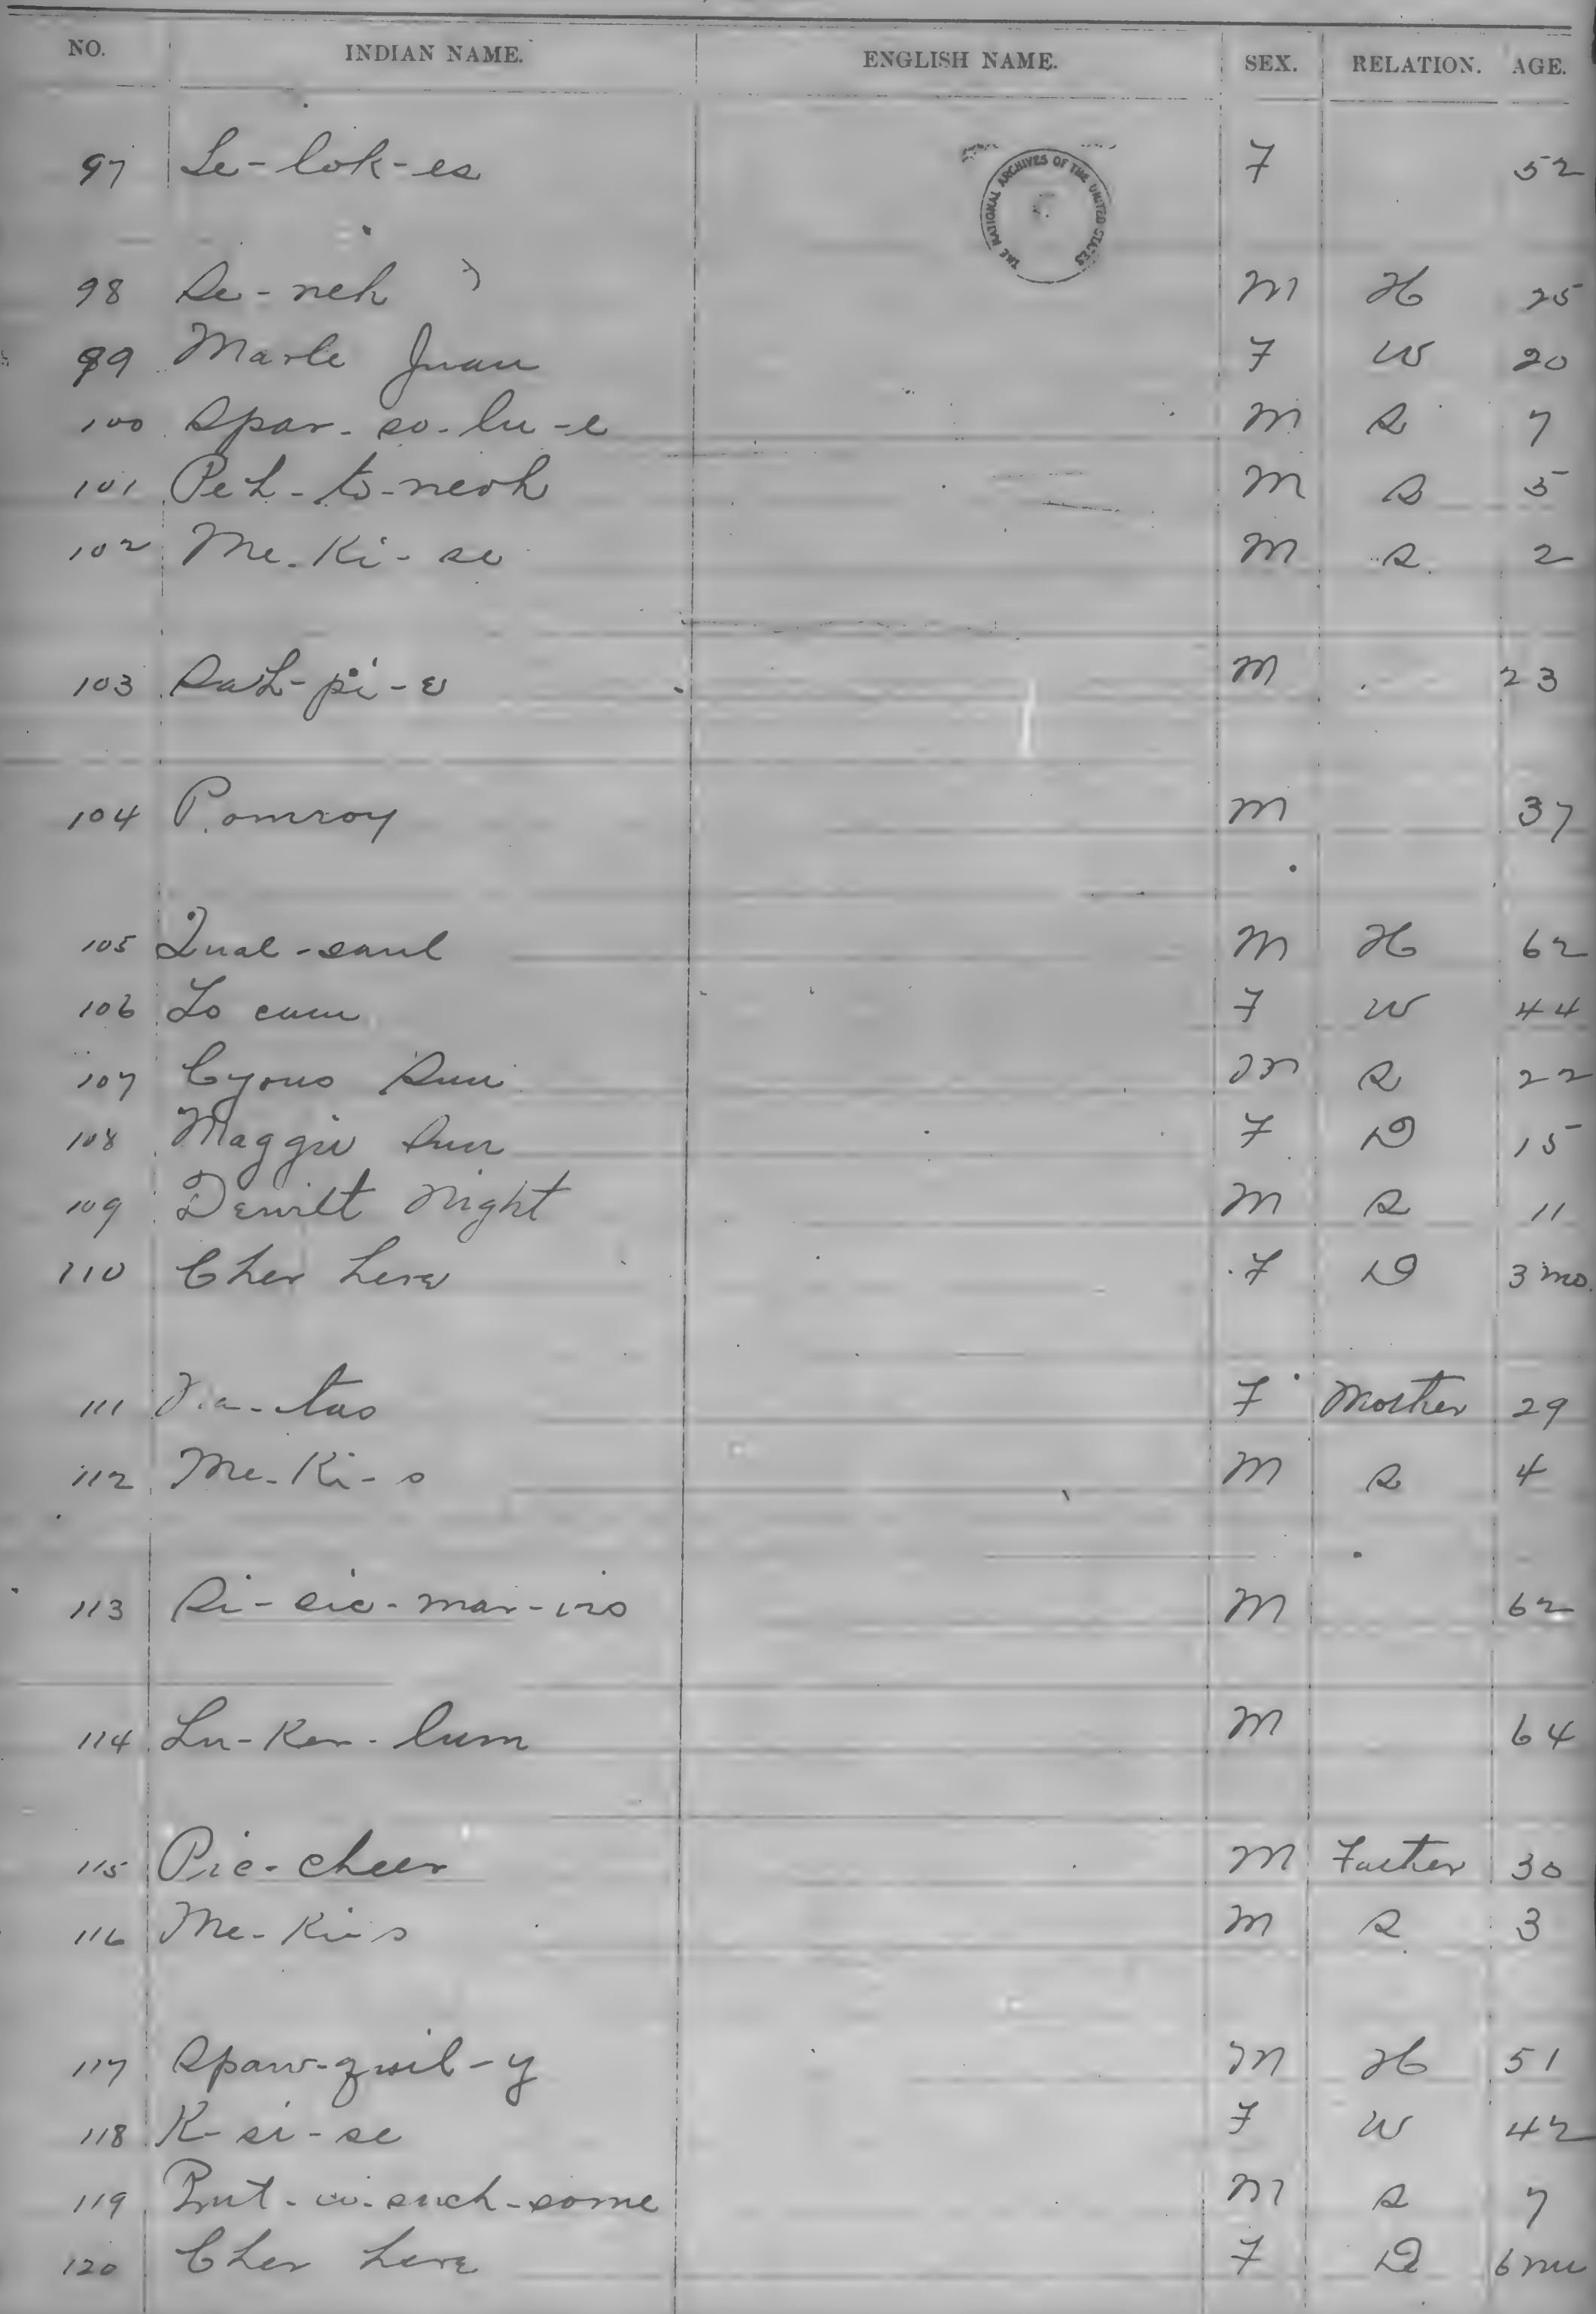 NO. INDIAN NAME. ENGLISH NAME. SEX. RELATION. AGE.
THE NATIONAL ARCHIVES OF THE UNITED STATES
97 Se-lok-es F 52
98 Se-neh M H 25
99 Marle Juan F W 20
100 Spar-so-lu-e M S 7
101 Pet-to-neoh M S 5
102 Me-Ki-se M S 2
103 Sat-pi-e M 23
104 Pomroy M 37
105 Qual-saul M H 62
106 Lo cum F W 44
107 Cyous Sun M S 22
108 Maggie Sun F D 15
109 Dewilt Night M S 11
110 Cher here F D 3 mo.
111 tas F Mother 29
112 Me-Ki-s M S 4
113 Si-sic-mar-iro M 62
114 Lu-Ker-lum M 64
115 Pic-cheer M Father 30
116 Me-Ki-s M S 3
117 Spaw-quil-y M H 51
118 K-si-se F W 42
119 such-some M S 7
120 Cher here F D 6 mo